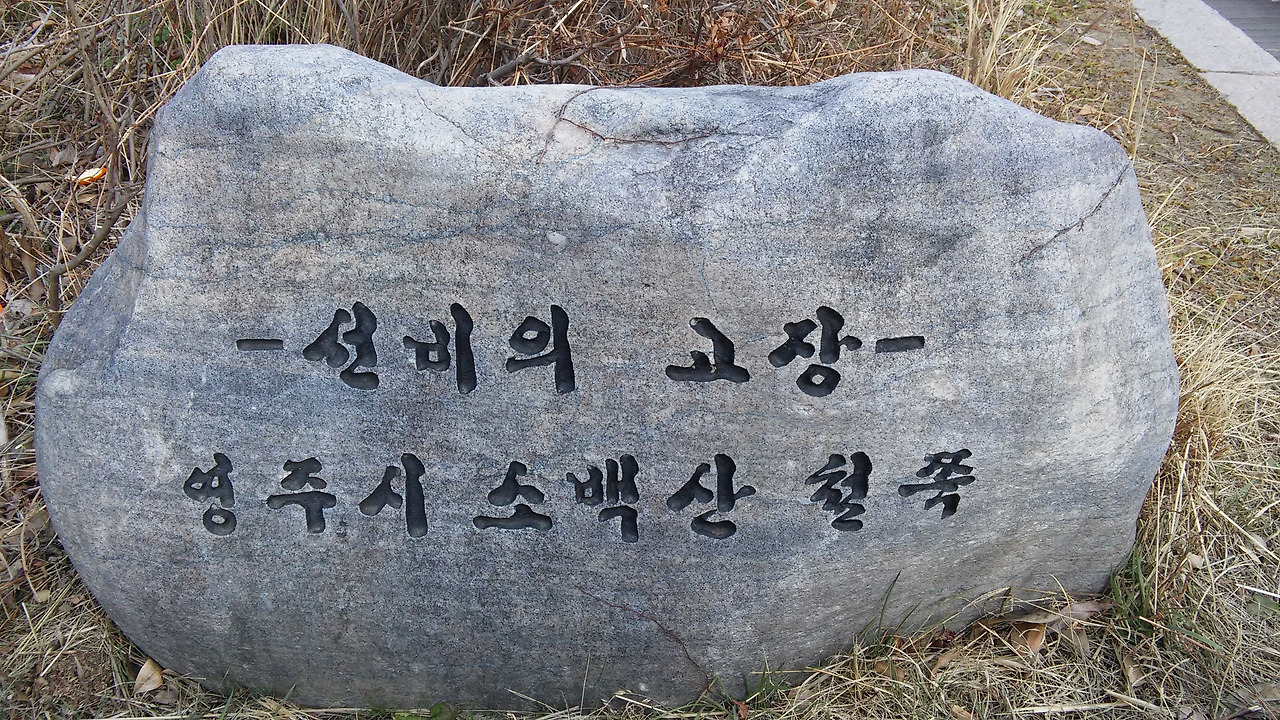 -선비의 고장-
영주시 소백산 철쭉